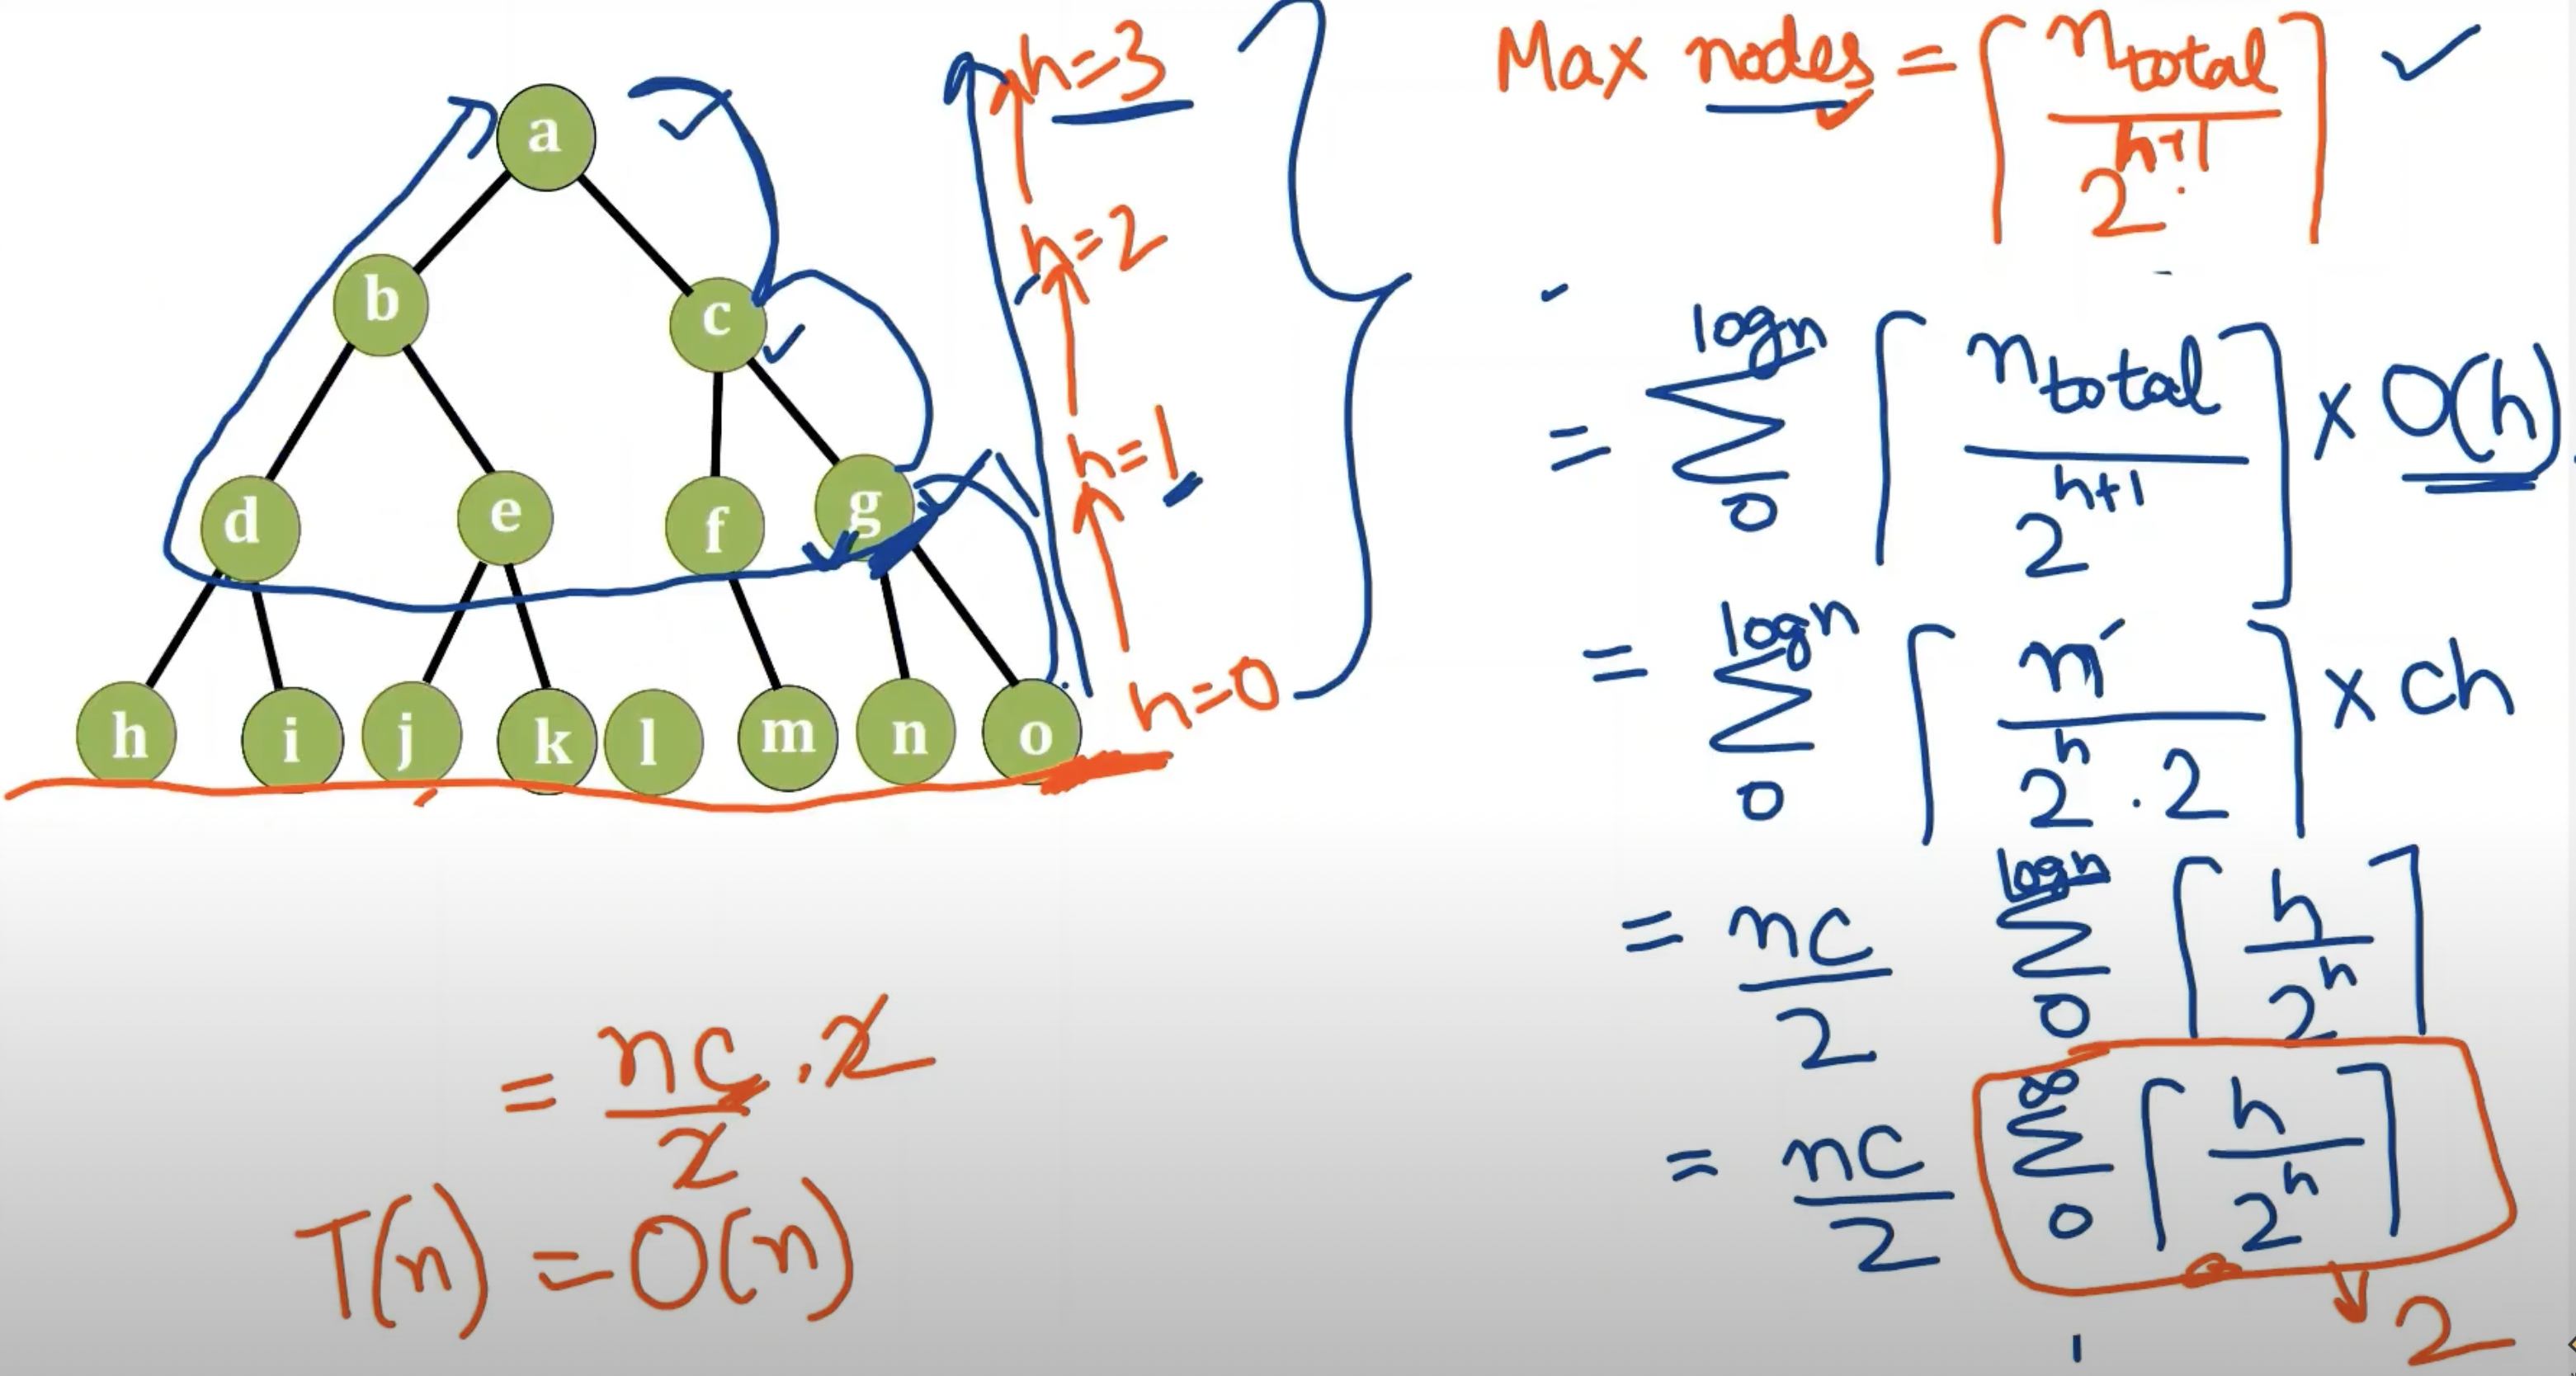 a
b c
d e f g
h i j k l m n o
h=3
h=2
h=1
h=0
Max nodes = ⌈ n_total / 2^(h+1) ⌉
= Σ_0^(logn) ⌈ n_total / 2^(h+1) ⌉ × O(h)
= Σ_0^(logn) ⌈ n / 2^h . 2 ⌉ × ch
= nc/2 Σ_0^(logn) ⌈ h / 2^h ⌉
= nc/2 Σ_0^∞ ⌈ h / 2^h ⌉
2
= nc/2 . 2
T(n) = O(n)